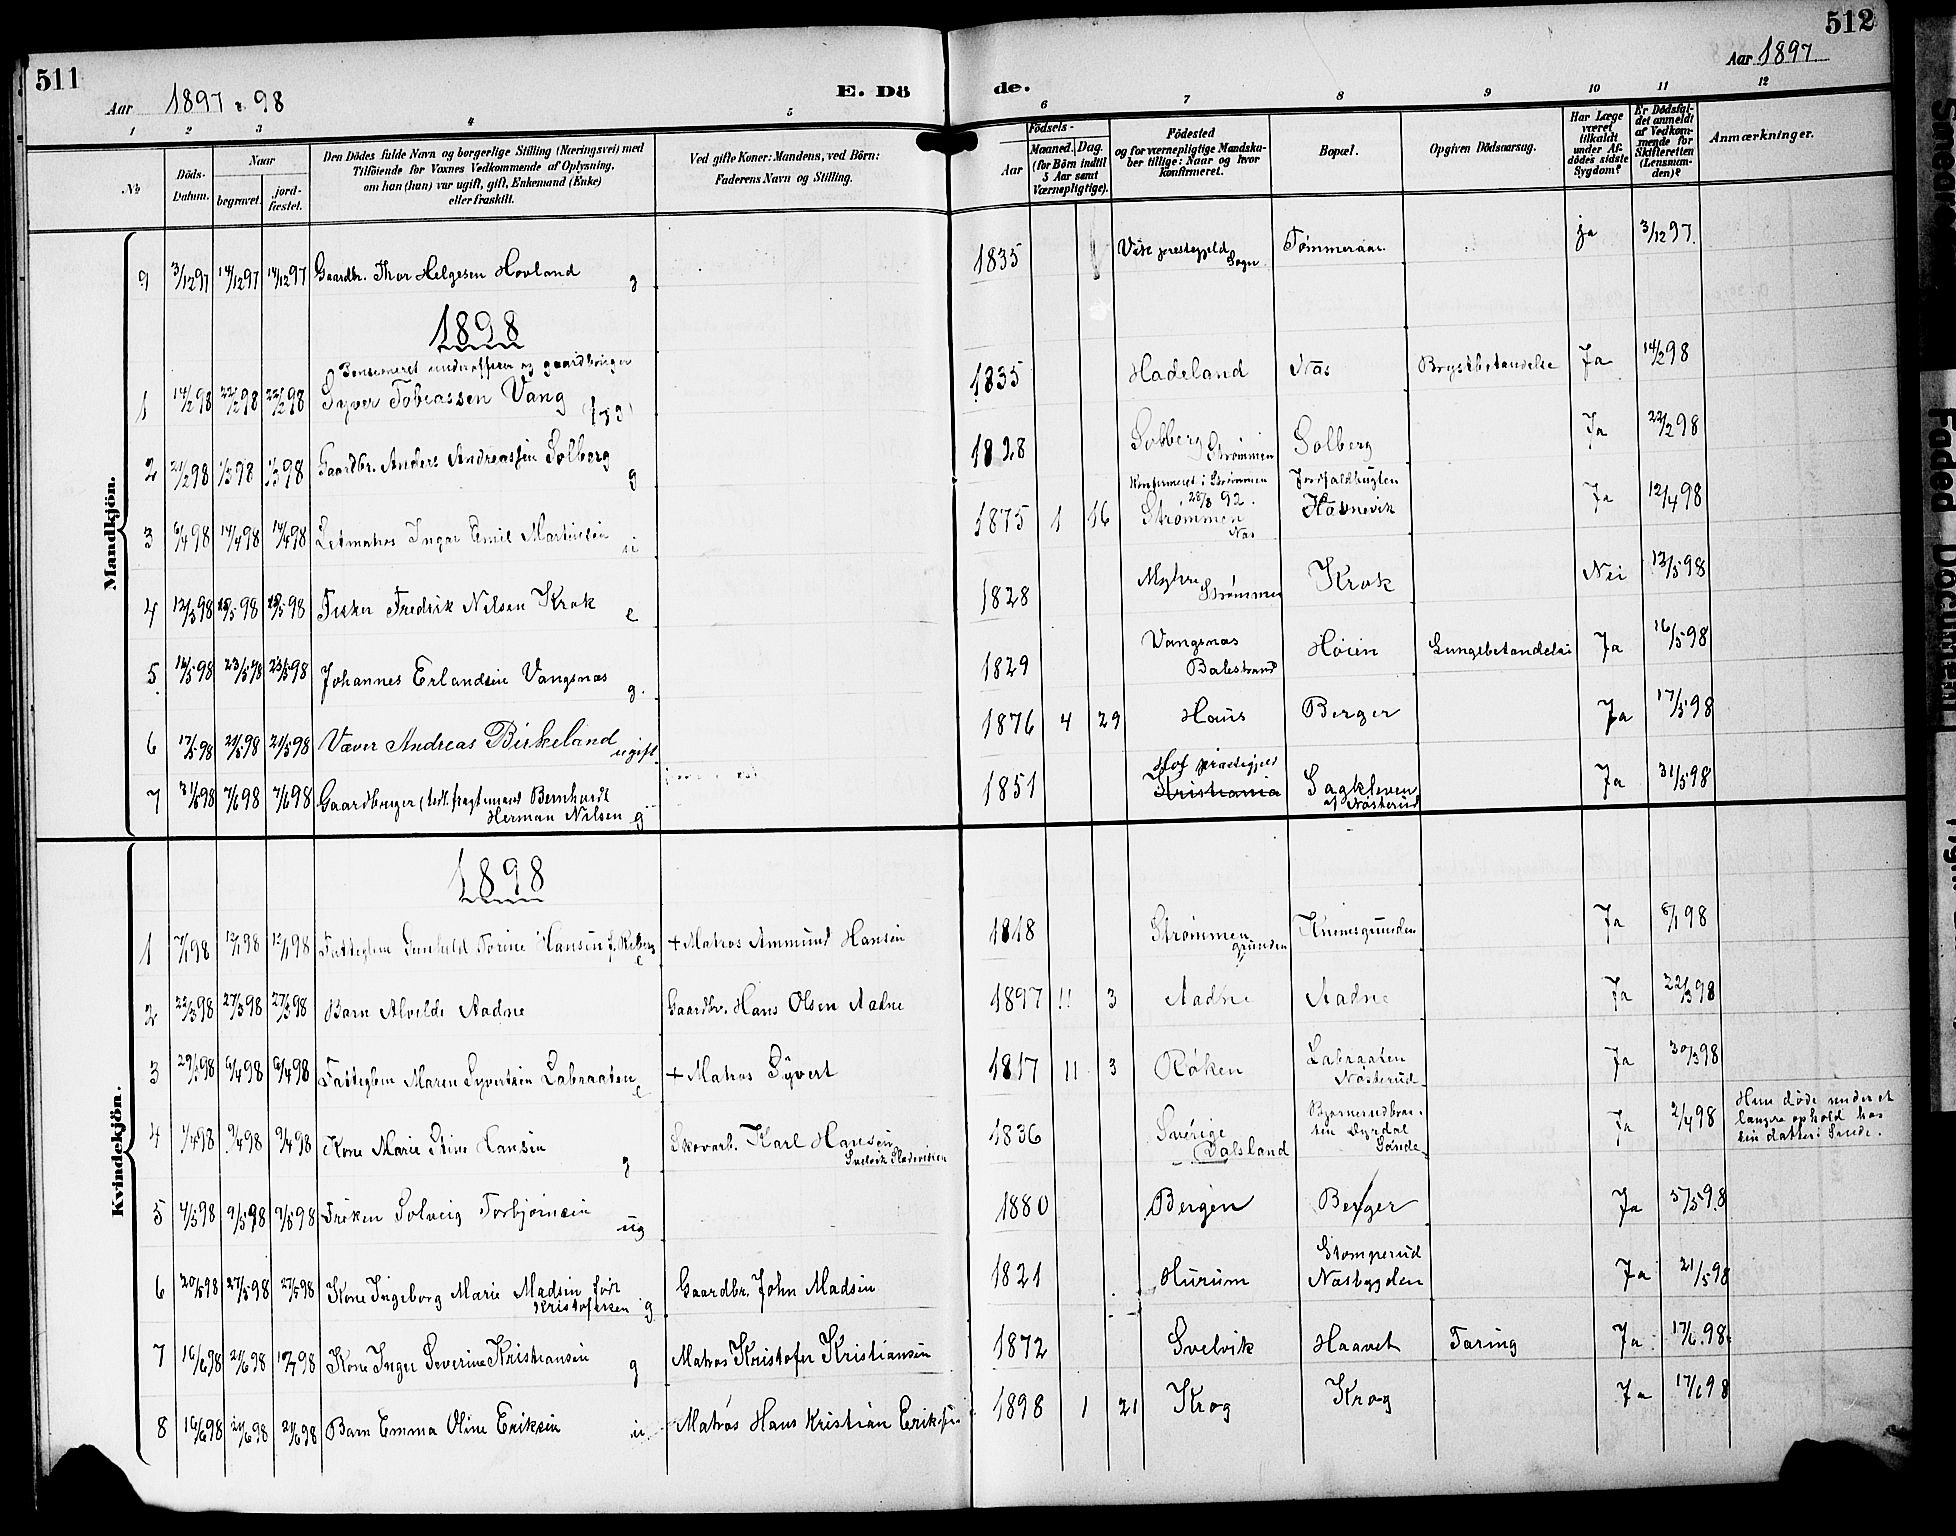 511
Aar 1897-98
E. Dö
de.
512
Aar 1897
1 2 3 4 5 6 7 8 9 10 11 12
No
Döds-Datum.
Naar
begravet.
jord-fæstet.
Den Dödes fulde Navn og borgerlige Stilling (Næringsvei) med
Tilföiende for Voxnes Vedkommende af Oplysning,
om han (hun) var ugift, gift, Enkemand (Enke)
eller fraskilt.
Ved gifte Koner: Mandens, ved Börn:
Faderens Navn og Stilling.
Födsels-
Aar
Maaned. Dag.
(for Börn indtil
5 Aar samt
Værnepligtige).
Födested
og for værnepligtige Mandska-
ber tillige: Naar og hvor
konfirmeret.
Bopæl.
Opgiven Dödsaarsag.
Har Læge
været
tilkaldt
under Af-
dödes sidste
Sygdom?
Er Dödsfal-
det anmeldt
af Vedkom-
mende for
Skifteretten
(Lensman-
den)?
Anmærkninger.
Mandkjön.
9 3/12 97 14/12 97 14/12 97 Gaardbr. Thor Helgesen Hovland g 1835 Vik prestegjeld Sogn Tømmeraas ja 3/12 97.
1898
Pensioneret underofficer og gaardbruger
1 14/2 98 22/2 98 22/2 98 Syver Tobiassen Vang 1835 Hadeland Næs Brystbetændelse Ja 14/2 98
2 21/2 98 1/3 98 1/3 98 Gaardbr. Anders Andreassen Solberg g 1828 Solberg Strømmen Solberg Ja 22/2 98
3 6/4 98 14/4 98 14/4 98 Letmatros Ingar Emil Martinsen 1875 1 16 Konfirmeret i Strømmen 28/8 92. Strømmen Næs Jordfaldbugten Havnevik Ja 12/4 98
4 12/5 98 98 98 Fisker Fredrik Nilsen Krok e 1828 Myhre Strømmen Krok Nei 13/5 98
5 98 23/5 98 23/5 98 Johannes Erlandsen Vangsnæs g. 1829 Vangsnæs Balestrand Høien Lungebetændelse Ja 16/5 98
6 17/5 98 21/5 98 21/5 98 Væver Andreas Birkeland ugift 1876 4 29 Haus Berger Ja 17/5 98
7 31/5 98 7/6 98 7/6 98 Gaardbruger Bernhardt
Herman Nilsen g 1851 Hof præstegjeld Kristiania Sagkleven af Næsterud Ja 31/5 98
Kvindekjön.
1898
1 7/1 98 12/1 98 12/1 98 Fattiglem Gunhild Torine Hansen e + Matros Ammund Hansen 1818 Strømmen grunden Ja 8/1 98
2 22/3 98 27/3 98 27/3 98 Barn Alvilde Aadne Gaardbr. Hans Olsen Aadne 1897 11 3 Aadne Aadne Ja 22/3 98
3 29/3 98 6/4 98 6/4 98 Fattiglem Maren Syvertsen Labraaten e + Matros Syvert 1817 11 3 Røken Labraaten Næsterud Ja 30/3 98
4 1/4 98 9/4 98 9/4 98 Kone Marie Stine Hansen g Skovarb. Karl Hansen Svelvik 1836 Sverige Dalsland Sande Ja 2/4 98 Hun døde under et
længre ophold hos
sin datter i Sande.
5 4/5 98 9/5 98 9/5 98 Frøken Solveig Torbjørnsen ug 1880 Bergen Berger Ja 5/5 98
6 20/5 98 27/5 98 27/5 98 Kone Ingeborg Marie Madsen født
Kristofersen g Gaardbr. John Madsen 1821 Hurum Stomperud Næsbygden Ja 21/5 98
7 16/6 98 21/6 98 98 Kone Inger Severine Kristiansen g Matros Kristofer Kristiansen 1872 Svelvik Haavet Tæring Ja 17/6 98.
8 16/6 98 21/6 98 21/6 98 Barn Emma Oline Eriksen Matros Hans Kristian Eriksen 1898 1 21 Krog Krog Ja 17/6 98
Faded Document